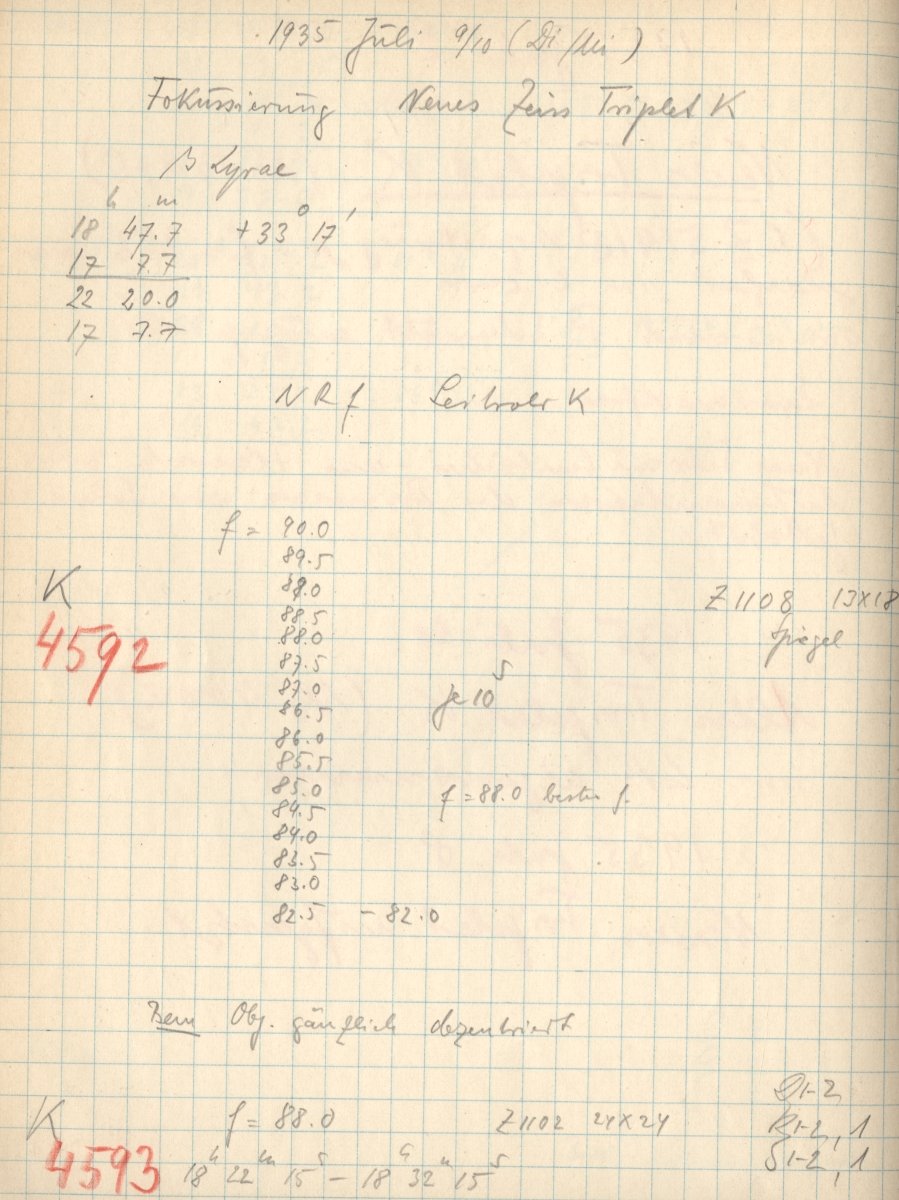 1935 Juli 9/10 (Di/Mi)
Fokussierung Neues Zeiss Triplet K
β Lyrae
18h 47m.7 +33° 17'
17 7.7
22 20.0
17 7.7
NRf Leitrohr K
f = 90.0
89.5
89.0
88.5
88.0
87.5
87.0
86.5
86.0
85.5
85.0
84.5
84.0
83.5
83.0
82.5 - 82.0
K
4592
Z 1108 13x18
Spiegel
je 10s
f = 88.0 bester f.
Bem Obj. gänzlich dezentriert
K
4593
f = 88.0 Z1102 24x24
18h 22m 15s - 18h 32m 15s
D1-2
R1-2, 1
S1-2, 1